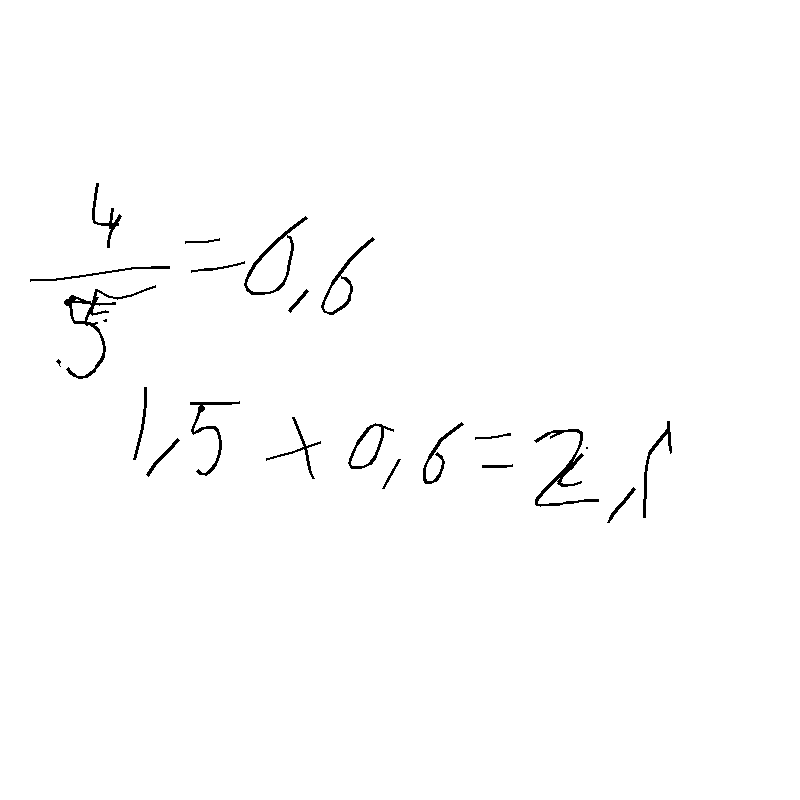 4/5 = 0,6
1,5 × 0,6 = 2,1